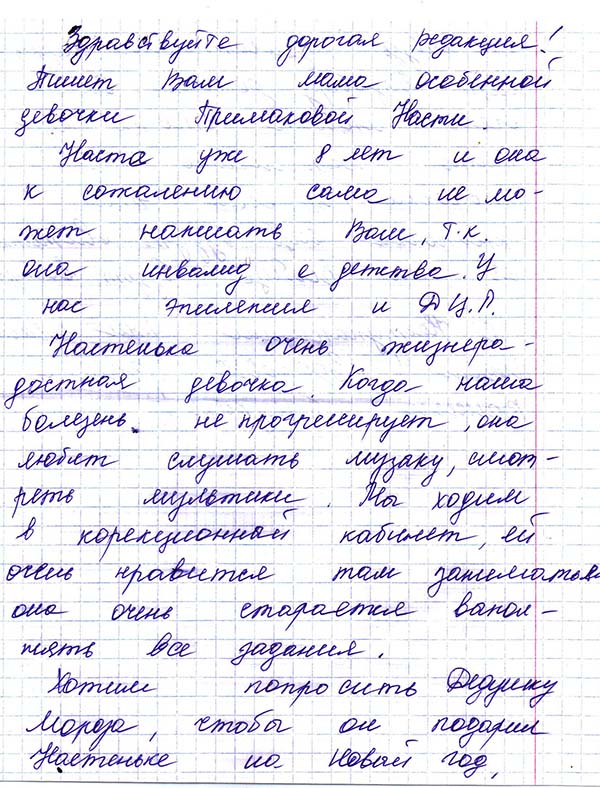 Здравствуйте дорогая редакция!
Пишет Вам мама особенной
девочки Примаковой Насти.
Настя уже 8 лет и она
к сожалению сама не мо-
жет написать Вам, т.к.
она инвалид с детства. У
нас эпилепсия и ДЦП.
Настенька очень жизнера-
достная девочка. Когда наша
болезень не прогрессирует, она
любит слушать музаку, смот-
реть мультики. Мы ходим
в корекционный кабинет, ей
очень нравится там заниматься
она очень старается выпол-
нять все задания.
Хотим попросить Дедушку
Мороза, чтобы он подарил
Настеньке на Новый год,